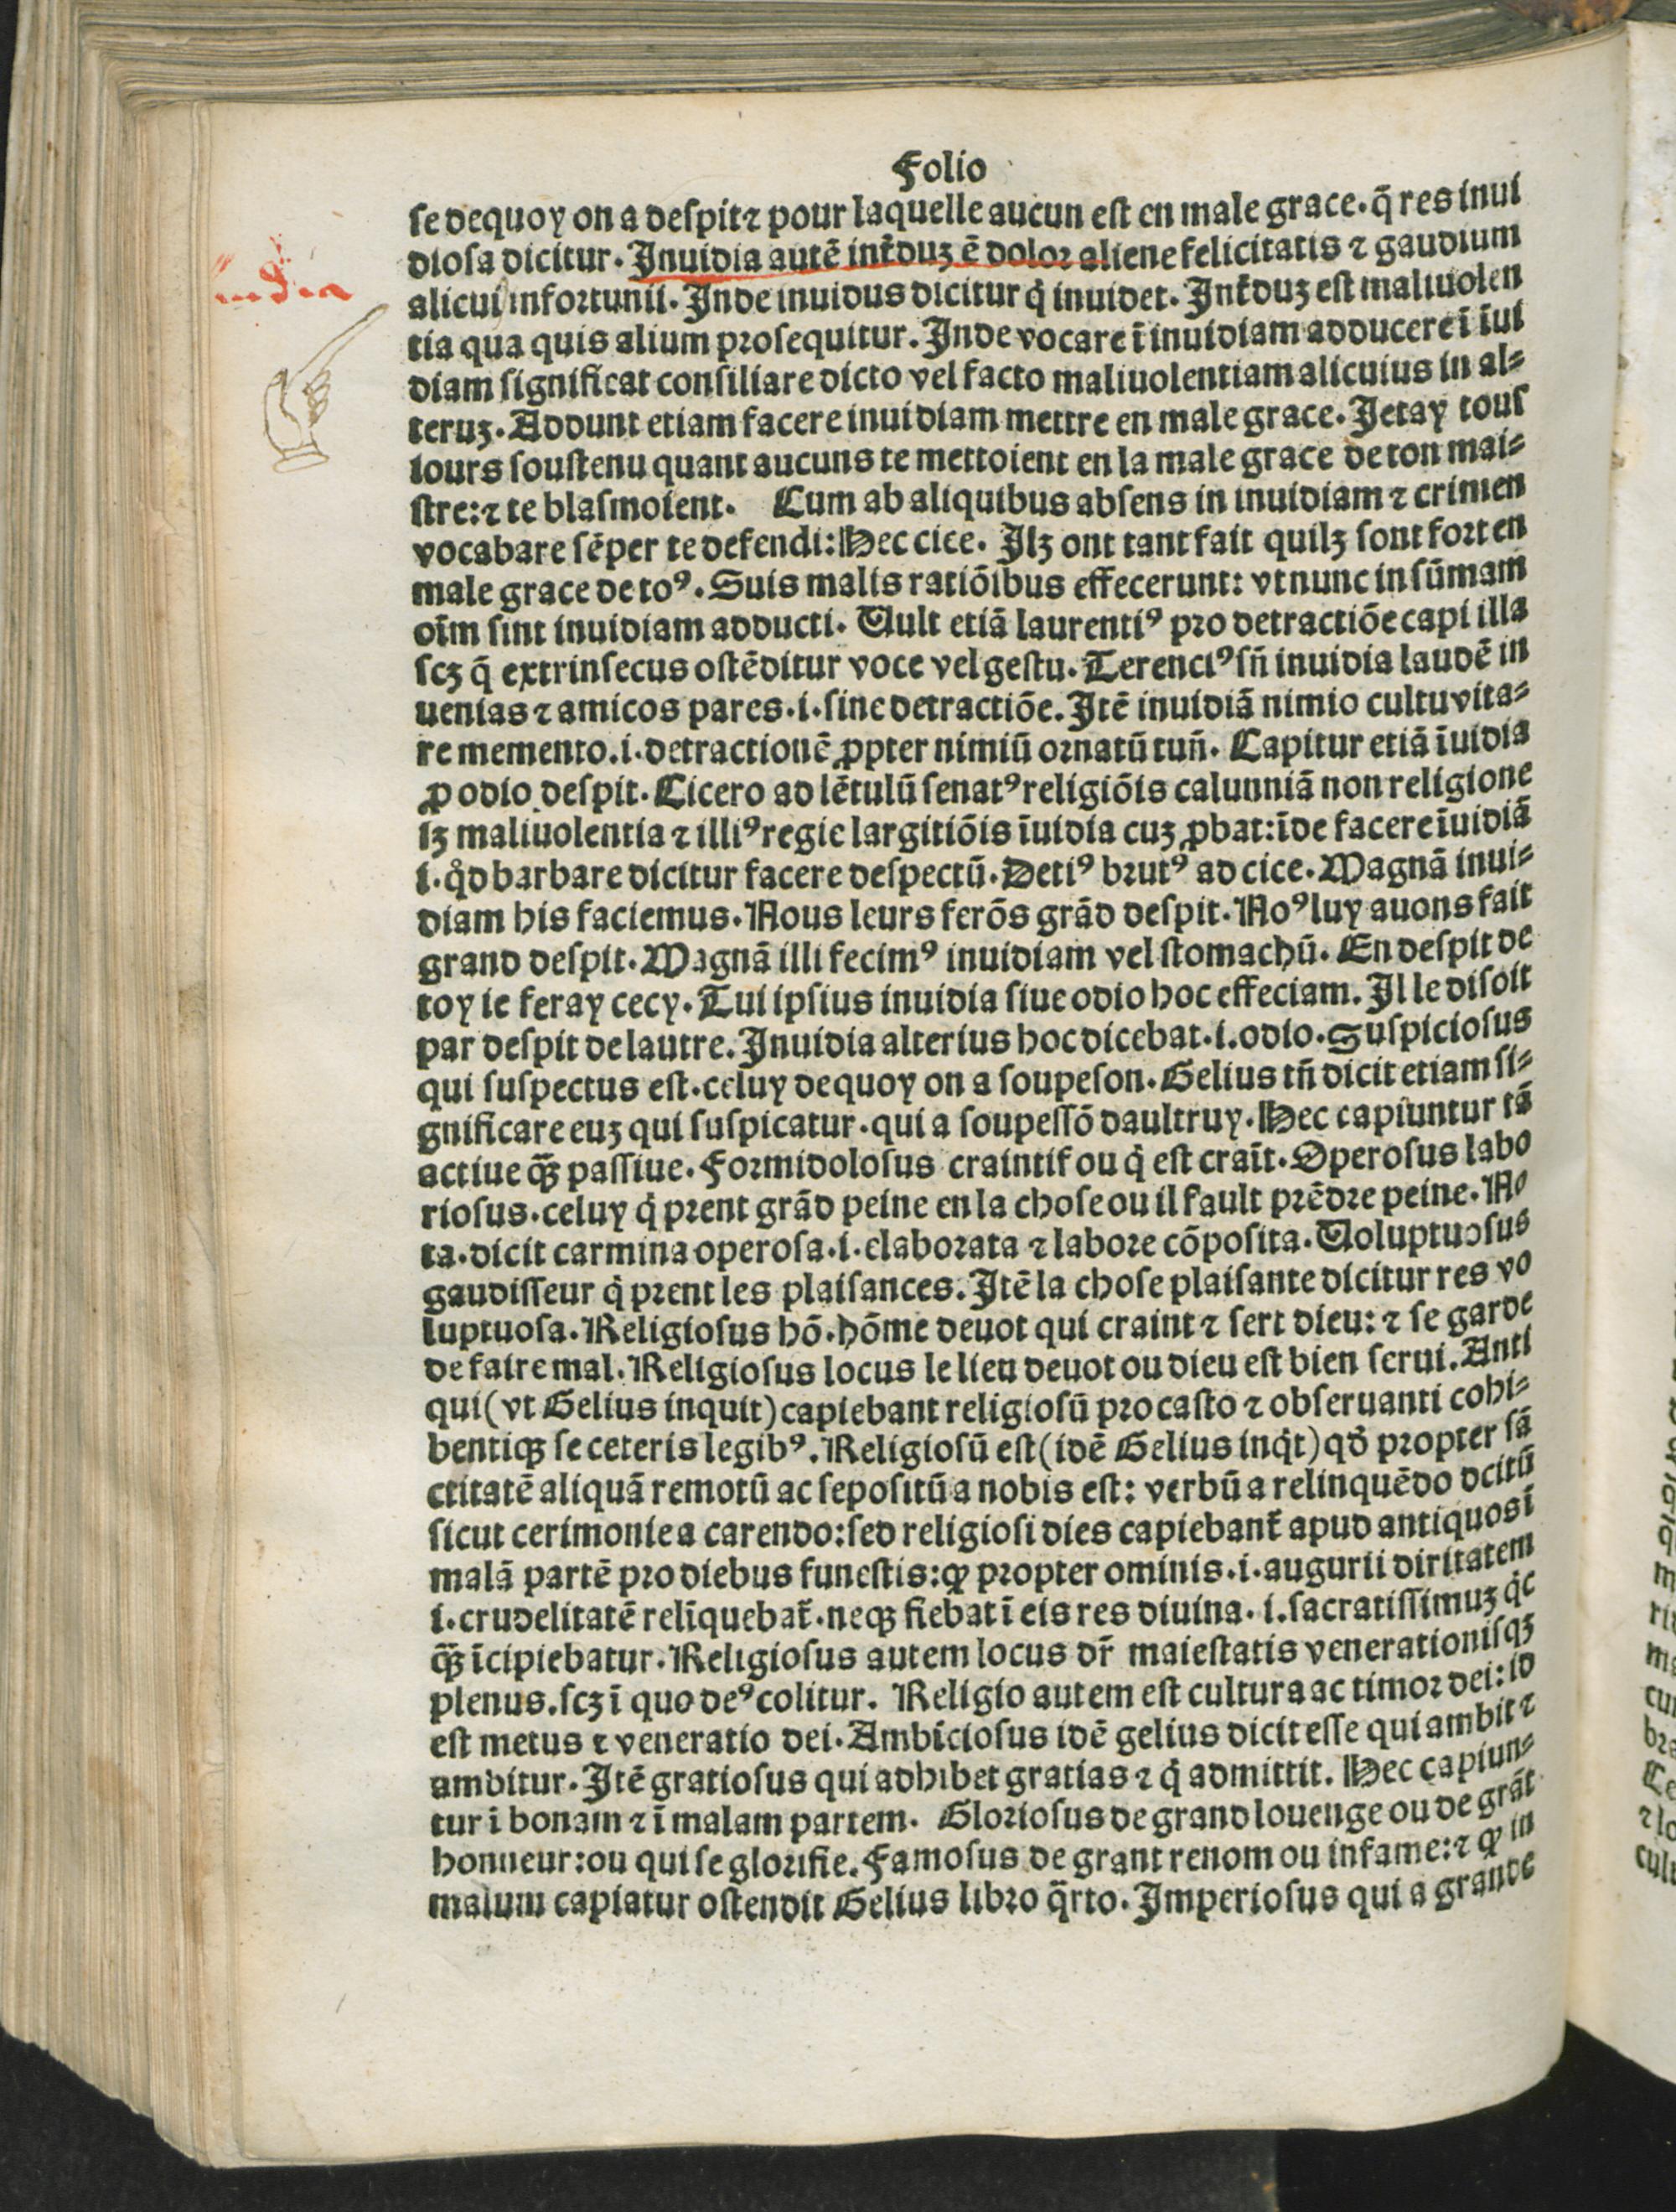 Folio
se dequoy on a despit⁊ pour laquelle aucun est en male grace. q̃ res inui
diosa dicitur. Inuidia autē int̃duꝫ ē dolor aliene felicitatis ⁊ gaudium
alicui infortunii. Inde inuidus dicitur q̇ inuidet. Int̃duꝫ est maliuolen
tia qua quis alium prosequitur. Inde vocare ī inuidiam adducere ī īui
diam significat consiliare dicto vel facto maliuolentiam alicuius in al-
teruꝫ. Addunt etiam facere inuidiam mettre en male grace. Ietay tous
iours soustenu quant aucuns te mettoient en la male grace de ton mai-
stre:⁊ te blasmoient. Cum ab aliquibus absens in inuidiam ⁊ crimen
vocabare sēper te defendi: Hec cice. Ilꝫ ont tant fait quilꝫ sont fort en
male grace de toꝰ. Suis malis ratiōibus effecerunt: vt nunc in sūmam
oīm sint inuidiam adducti. Uult etiā laurentiꝰ pro detractiōe capi illa
scꝫ q̄ extrinsecus ostēditur voce vel gestu. Terenciꝰ sn̄ inuidia laudē in
uenias ⁊ amicos pares .i. sine detractiōe. Itē inuidiā nimio cultu vita-
re memento .i. detractionē ꝓpter nimiū ornatū tun̄. Capitur etiā īuidia
ꝓ odio despit. Cicero ad lētulū senatꝰ religiōis calunniā non religione
sꝫ maliuolentia ⁊ illiꝰ regie largitiōis īuidia cuꝫ ꝓbat: īde facere īuidiā
i. q̊d barbare dicitur facere despectū. Detiꝰ brutꝰ ad cice. Magnā inui-
diam his faciemus. Nous leurs ferōs grād despit. Noꝰ luy auons fait
grand despit. Magnā illi fecimꝰ inuidiam vel stomachū. En despit de
toy ie feray cecy. Tui ipsius inuidia siue odio hoc effeciam. Il le disoit
par despit de lautre. Inuidia alterius hoc dicebat .i. odio. Suspiciosus
qui suspectus est. celuy dequoy on a soupeson. Gelius tn̄ dicit etiam si-
gnificare euꝫ qui suspicatur. qui a soupessō daultruy. Hec capiuntur tā
actiue qꝫ̄ passiue. Formidolosus craintif ou q̇ est craīt. Operosus labo
riosus. celuy q̇ prent grād peine en la chose ou il fault prēdre peine. No
ta. dicit carmina operosa .i. elaborata ⁊ labore cōposita. Uoluptuosus
gaudisseur q̇ prent les plaisances. Itē la chose plaisante dicitur res vo
luptuosa. Religiosus hō. hōme deuot qui craint ⁊ sert dieu: ⁊ se garde
de faire mal. Religiosus locus le lieu deuot ou dieu est bien serui. Anti
qui (vt Gelius inquit) capiebant religiosū pro casto ⁊ obseruanti cohi-
bentiqꝫ se ceteris legibꝰ. Religiosū est (idē Gelius inq̇t) qḋ propter sā
ctitatē aliquā remotū ac sepositū a nobis est: verbū a relinquēdo dcitū
sicut cerimonie a carendo: sed religiosi dies capiebant̃ apud antiquos ī
malā partē pro diebus funestis: ꝙ propter ominis .i. augurii diritatem
i. crudelitatē relīquebat̃. neqꝫ fiebat ī eis res diuina. i. sacratissimuꝫ q̇c
qꝫ̄ īcipiebatur. Religiosus autem locus dr̄ maiestatis venerationisqꝫ
plenus. scꝫ ī quo deꝰ colitur. Religio autem est cultura ac timor dei: id
est metus ⁊ veneratio dei. Ambiciosus idē gelius dicit esse qui ambit ⁊
ambitur. Itē gratiosus qui adhibet gratias ⁊ q̇ admittit. Hec capiun-
tur ī bonam ⁊ ī malam partem. Gloriosus de grand louenge ou de grāt
honneur: ou qui se glorifie. Famosus de grant renom ou infame: ⁊ ꝙ in
malum capiatur ostendit Gelius libro q̄rto. Imperiosus qui a grande